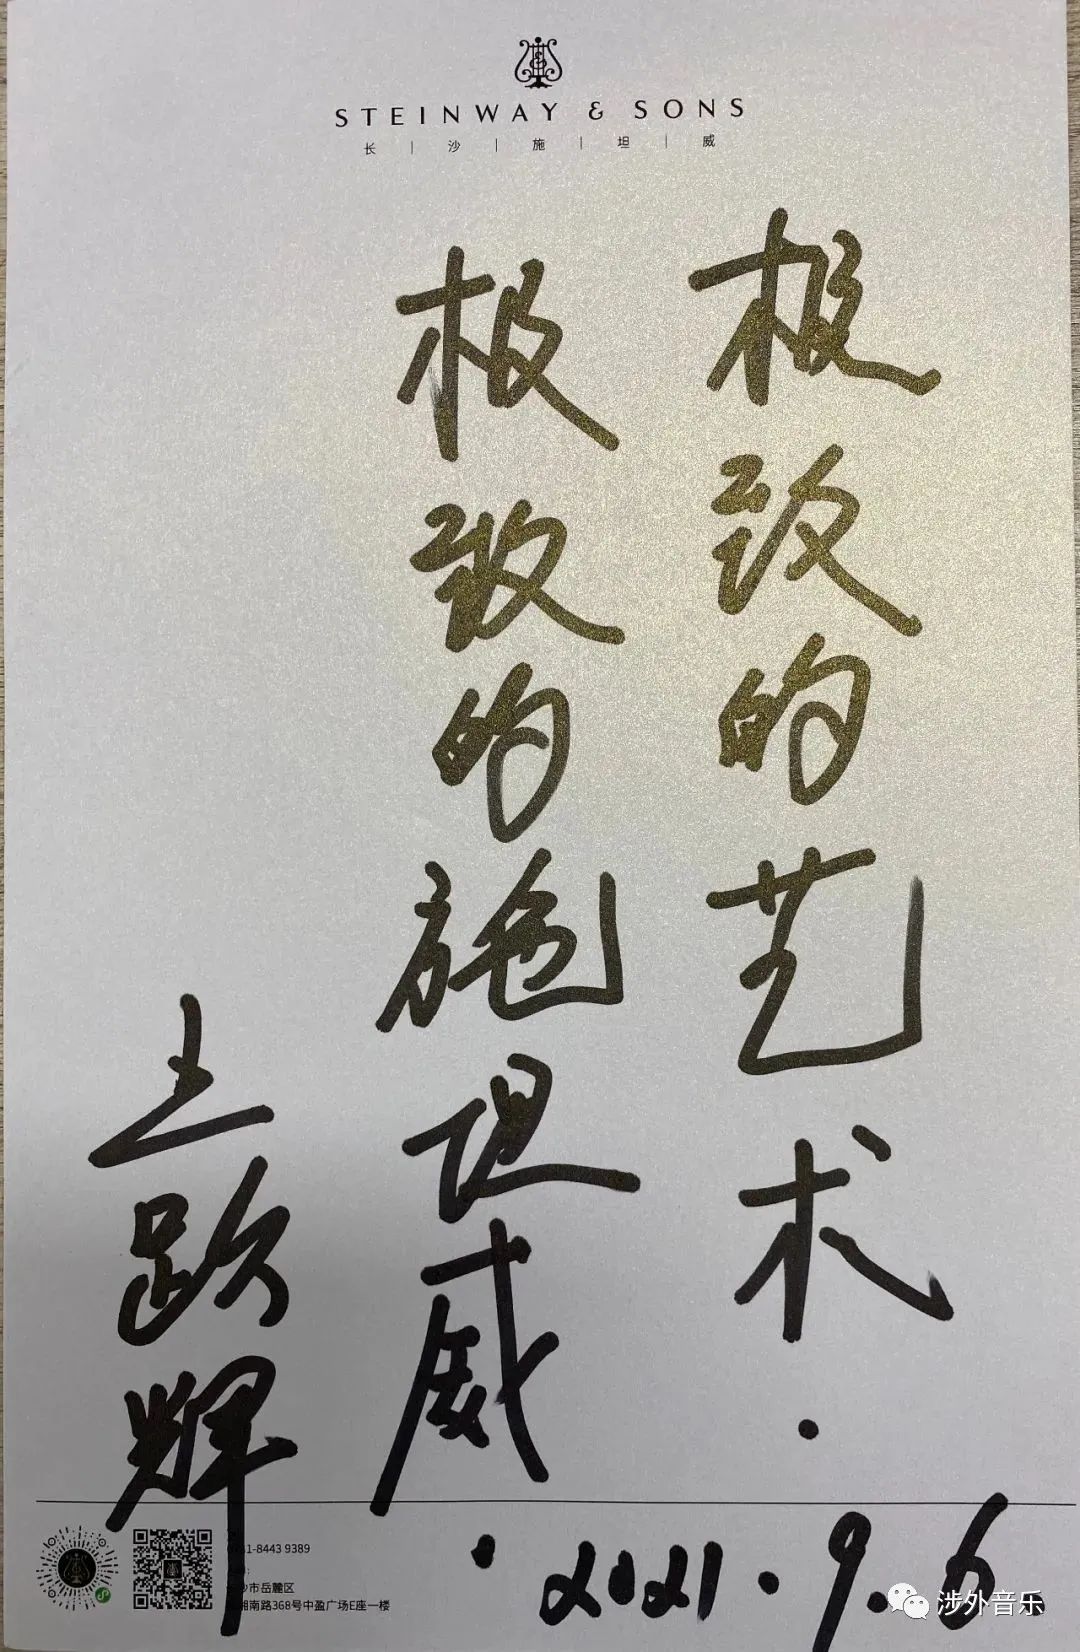 STEINWAY & SONS
长 | 沙 | 施 | 坦 | 威
极致的艺术.
极致的施坦威.
王跃辉
2021.9.6.
31-8443 9389
沙市岳麓区
湘南路368号中盈广场E座一楼
涉外音乐